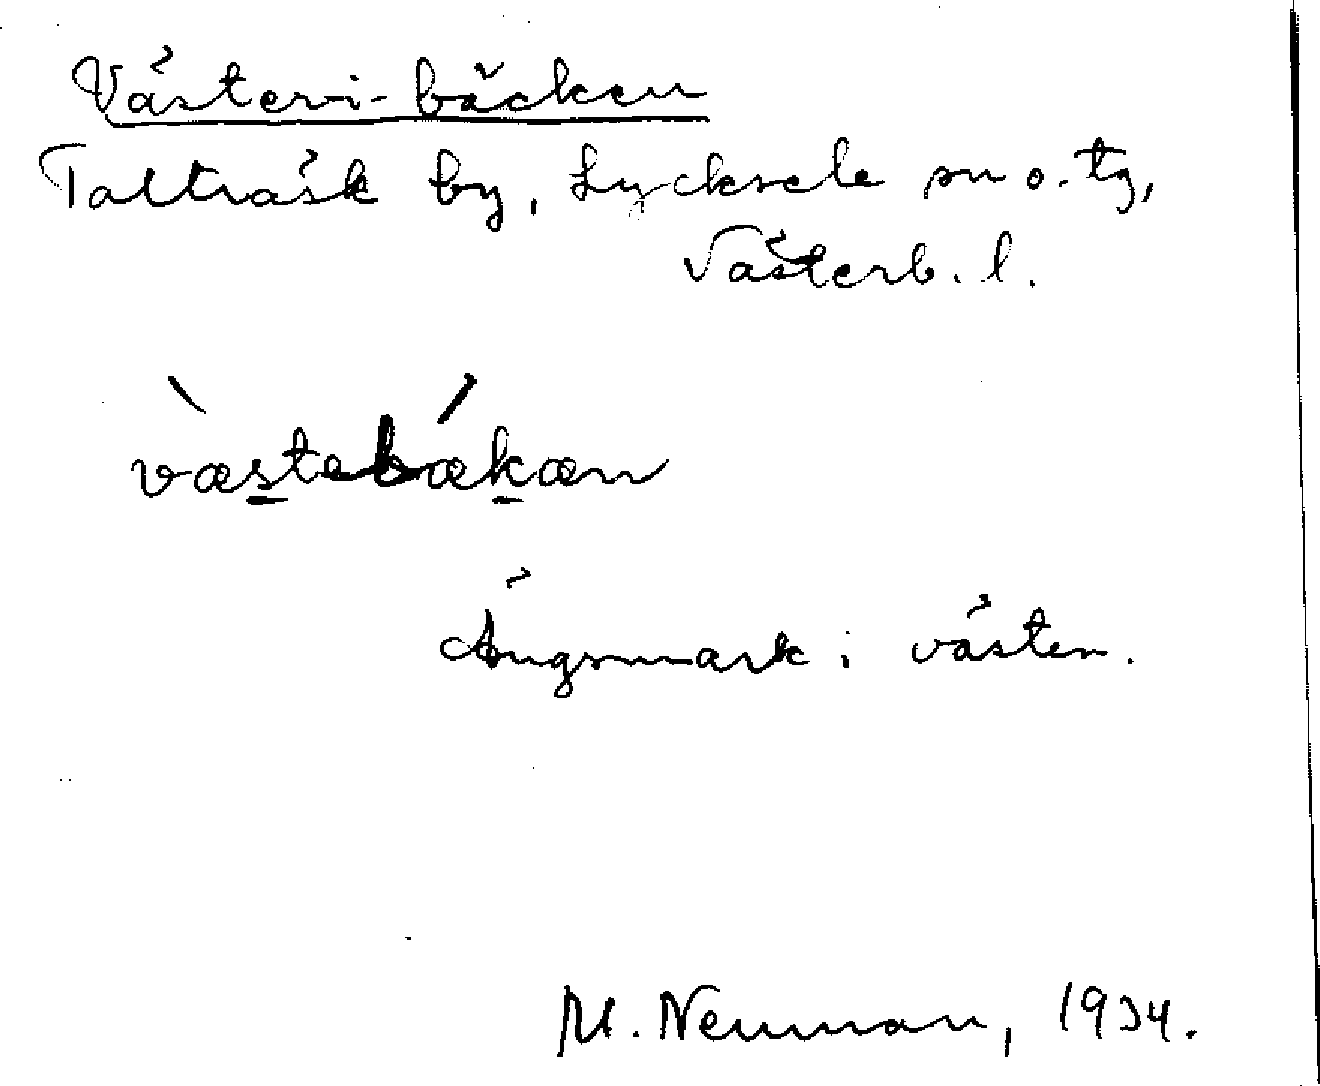 Västeri-bäcken
Talträsk by, Lycksele sn o. tg,
Västerb. l.
væstebækæn
Ängsmark i väster.
M. Neuman, 1934.